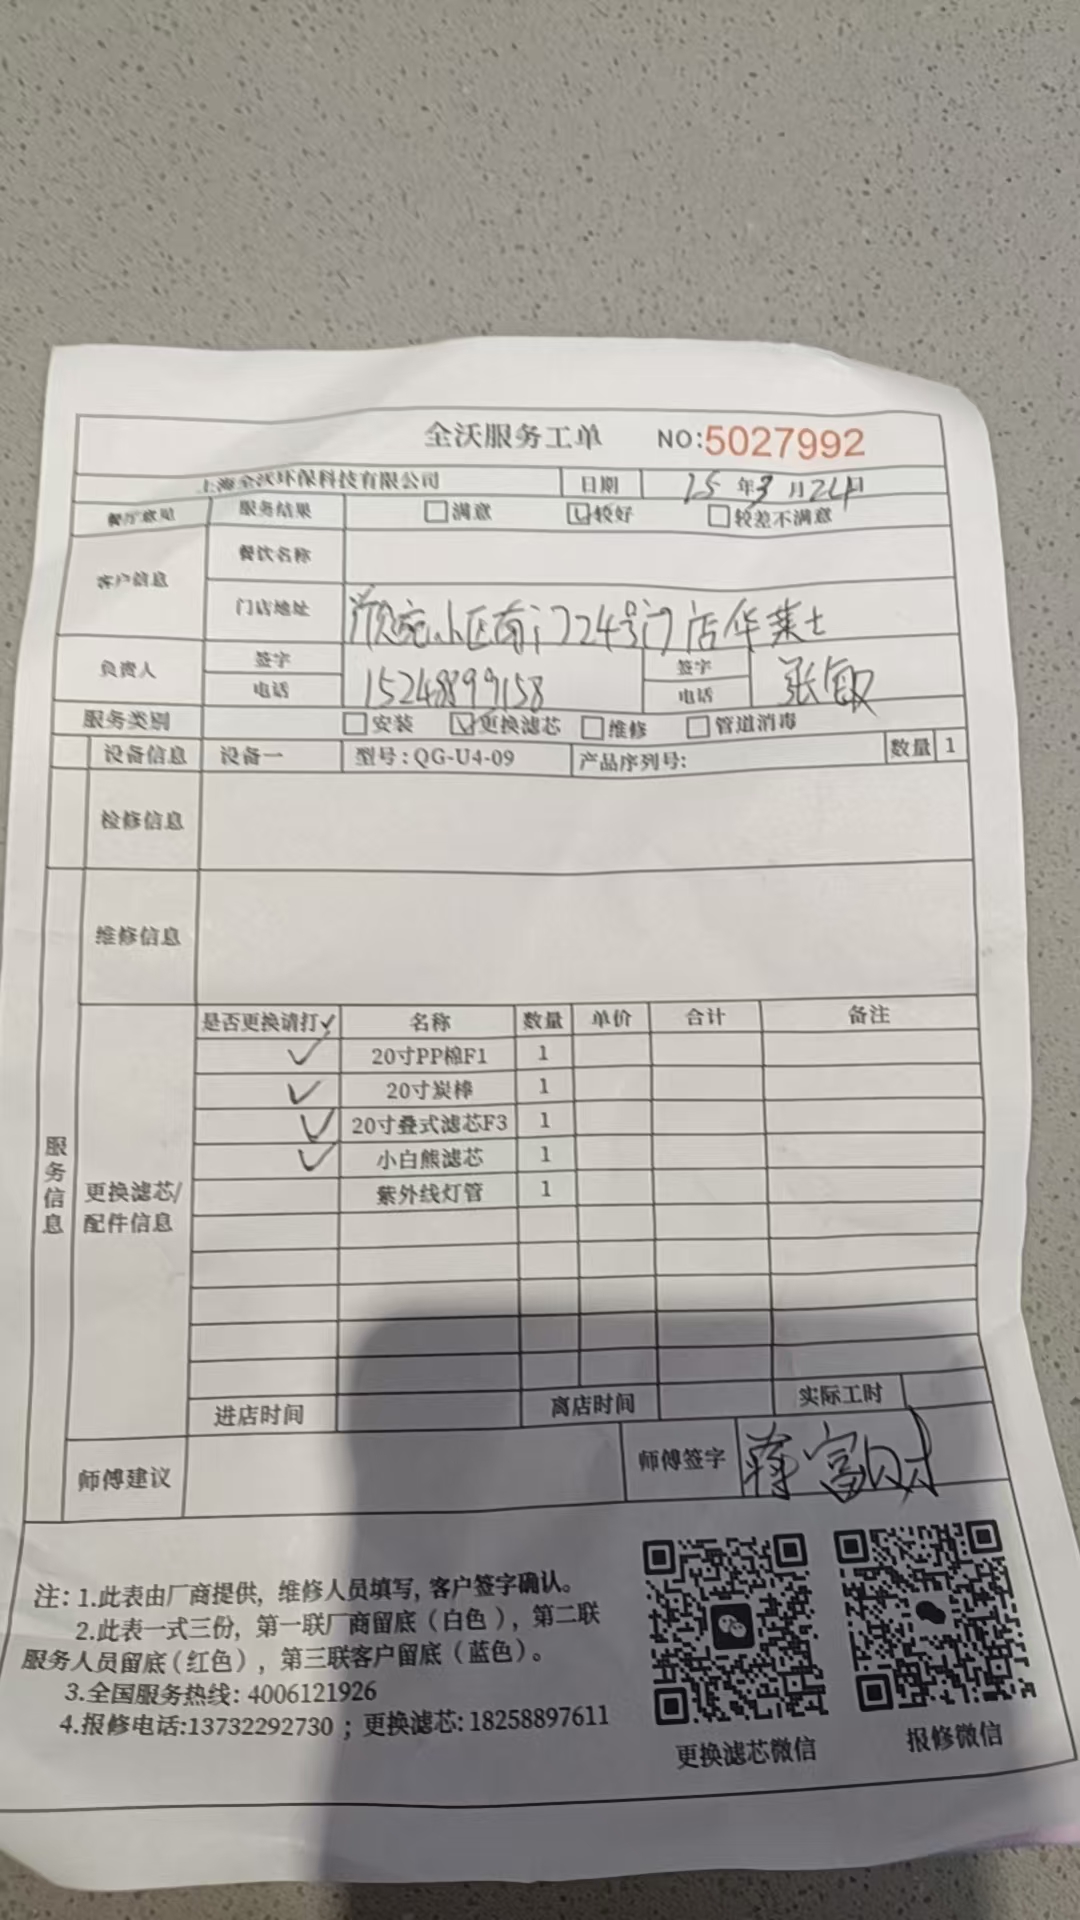 全沃服务工单 NO:5027992
上海全沃环保科技有限公司 日期 25年3月24日
餐厅意见 服务结果 满意 较好 较差不满意
客户信息 餐饮名称
门店地址 欣宛小区南门24号门店华莱士
负责人 签字 签字
电话 15248899158 电话 张
服务类别 安装 更换滤芯 维修 管道消毒
设备信息 设备一 型号:QG-U4-09 产品序列号: 数量 1
检修信息
维修信息
服务信息
更换滤芯/配件信息
是否更换请打✓ 名称 数量 单价 合计 备注
✓ 20寸PP棉F1 1
✓ 20寸炭棒 1
✓ 20寸叠式滤芯F3 1
✓ 小白熊滤芯 1
紫外线灯管 1
进店时间 离店时间 实际工时
师傅建议 师傅签字 蒋富财
注: 1.此表由厂商提供, 维修人员填写, 客户签字确认。
2.此表一式三份, 第一联厂商留底(白色), 第二联
服务人员留底(红色), 第三联客户留底(蓝色)。
3.全国服务热线: 4006121926
4.报修电话:13732292730 ; 更换滤芯: 18258897611
更换滤芯微信 报修微信